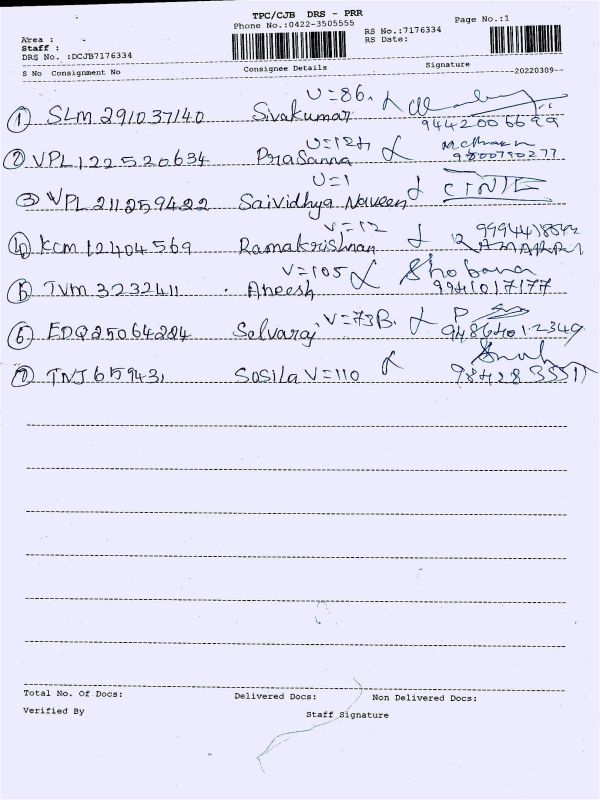 TPC/CJB DRS - PRR
Phone No.:0422-3505555
Page No.:1
Area :
RS No.:7176334
Staff :
RS Date:
DRS No. :DCJB7176334
S No Consignment No Consignee Details Signature
20220309
1 SLM 291037140 Sivakumar U=86.
9442006699
2 VPL 122520634 Prasanna
9800790277
3 VPL 211259422 Saividhya Naveen U=1
4 KCM 12404569 Ramakrishnan V=12
5 TVM 3232411 Aneesh V=105 Shobana
9941017177
6 EDQ25064284 Selvaraj V=73B. P
94864012349
7 TNJ 659431 Sosila V=110
Total No. Of Docs: Delivered Docs: Non Delivered Docs:
Verified By Staff Signature